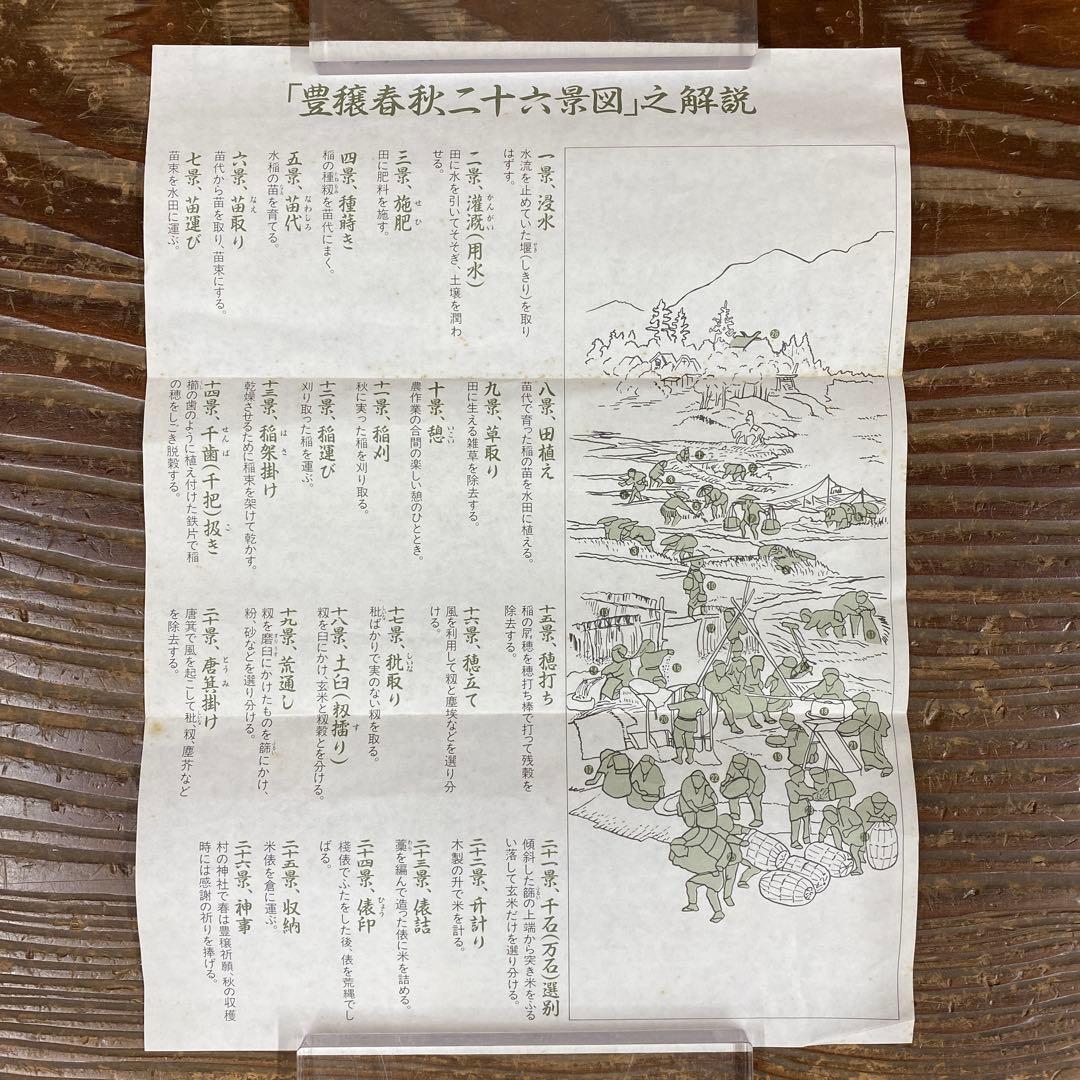 「豊穣春秋二十六景図」之解説
一景、浸水
水流を止めていた堰(しきり)を取り
はずす。
二景、灌漑(用水)
田に水を引いてそそぎ、土壌を潤わ
せる。
三景、施肥
田に肥料を施す。
四景、種蒔き
稲の種籾を苗代にまく。
五景、苗代
水稲の苗を育てる。
六景、苗取り
苗代から苗を取り、苗束にする。
七景、苗運び
苗束を水田に運ぶ。
八景、田植え
苗代で育った稲の苗を水田に植える。
九景、草取り
田に生える雑草を除去する。
十景、憩
農作業の合間の楽しい憩のひととき。
十一景、稲刈
秋に実った稲を刈り取る。
十二景、稲運び
刈り取った稲を運ぶ。
十三景、稲架掛け
乾燥させるために稲束を架けて乾かす。
十四景、千歯(千把)扱き
櫛の歯のように植え付けた鉄片で稲
の穂をしごき脱穀する。
十五景、穂打ち
稲の尻穂を穂打ち棒で打って残穀を
除去する。
十六景、穂立て
風を利用して籾と塵埃などを選り分
ける。
十七景、粃取り
粃ばかりで実のない籾を取る。
十八景、土臼(籾擂り)
籾を臼にかけ、玄米と籾穀とを分ける。
十九景、荒通し
籾を磨臼にかけたものを篩にかけ、
粉、砂などを選り分ける。
二十景、唐箕掛け
唐箕で風を起こして粃、籾、塵芥など
を除去する。
二十一景、千石(万石)選別
傾斜した篩の上端から突き米をふる
い落して玄米だけを選り分ける。
二十二景、升計り
木製の升で米を計る。
二十三景、俵詰
藁を編んで造った俵に米を詰める。
二十四景、俵印
棧俵でふたをした後、俵を荒縄でし
ばる。
二十五景、収納
米俵を倉に運ぶ。
二十六景、神事
村の神社で春は豊穣祈願、秋の収穫
時には感謝の祈りを捧げる。